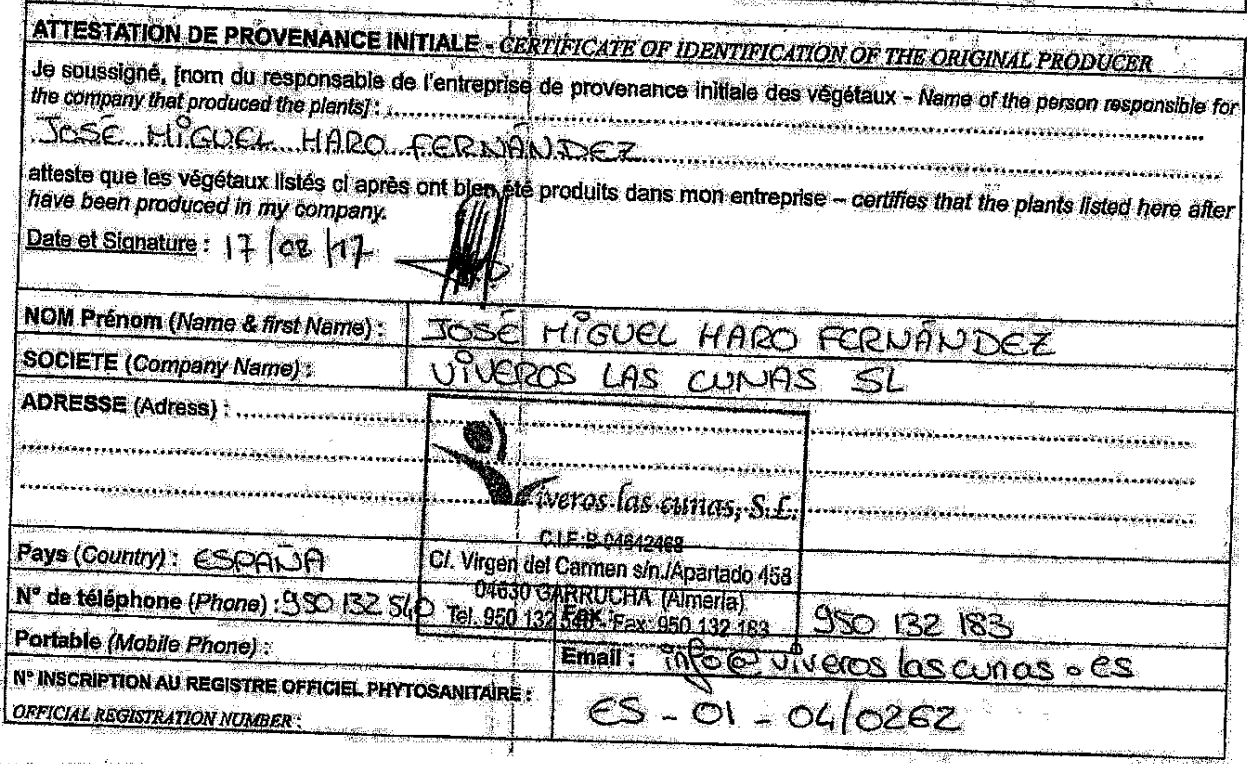 ATTESTATION DE PROVENANCE INITIALE - CERTIFICATE OF IDENTIFICATION OF THE ORIGINAL PRODUCER
Je soussigné, [nom du responsable de l'entreprise de provenance initiale des végétaux - Name of the person responsible for
the company that produced the plants] :
JOSÉ MIGUEL HARO FERNÁNDEZ
atteste que les végétaux listés ci après ont bien été produits dans mon entreprise – certifies that the plants listed here after
have been produced in my company.
Date et Signature : 17/08/17
NOM Prénom (Name & first Name) : JOSÉ MIGUEL HARO FERNÁNDEZ
SOCIETE (Company Name) : VIVEROS LAS CUNAS SL
ADRESSE (Adress) :
Viveros las cunas, S.L.
C.I.F.: B-04642468
Pays (Country) : ESPAÑA
C/. Virgen del Carmen s/n./Apartado 458
04630 GARRUCHA (Almería)
N° de téléphone (Phone) : 950 132 540
Tel. 950 132 540 - Fax: 950 132 183
Fax : 950 132 183
Portable (Mobile Phone) :
Email : info@viveroslascunas.es
N° INSCRIPTION AU REGISTRE OFFICIEL PHYTOSANITAIRE :
OFFICIAL REGISTRATION NUMBER :
ES - 01 - 04/0262